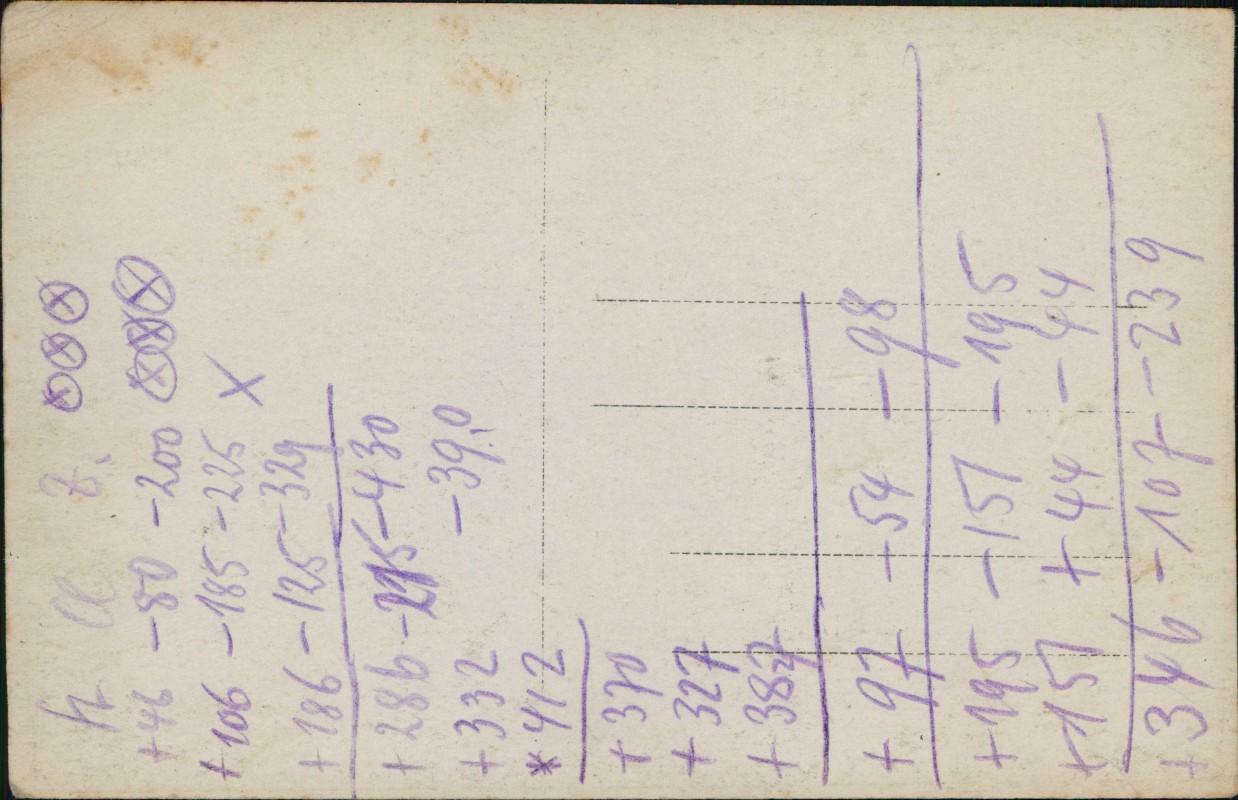 h Cl Z.
+46 -80 -200
+106 -185 -225 X
+186 -125 -329
+286 -215 -430
+332 -390
*412
+370
+327
+387
+97 -54 -98
+195 -151 -195
+151 +44 -44
+346 -107 -239